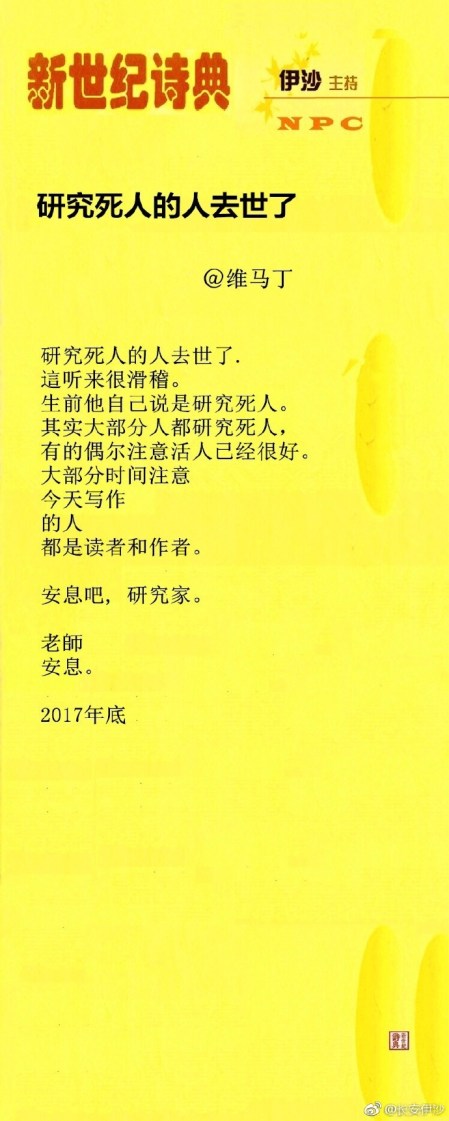 新世纪诗典
伊沙 主持
NPC
研究死人的人去世了
@维马丁
研究死人的人去世了.
這听来很滑稽。
生前他自己说是研究死人。
其实大部分人都研究死人，
有的偶尔注意活人已经很好。
大部分时间注意
今天写作
的人
都是读者和作者。
安息吧，研究家。
老師
安息。
2017年底
@长安伊沙